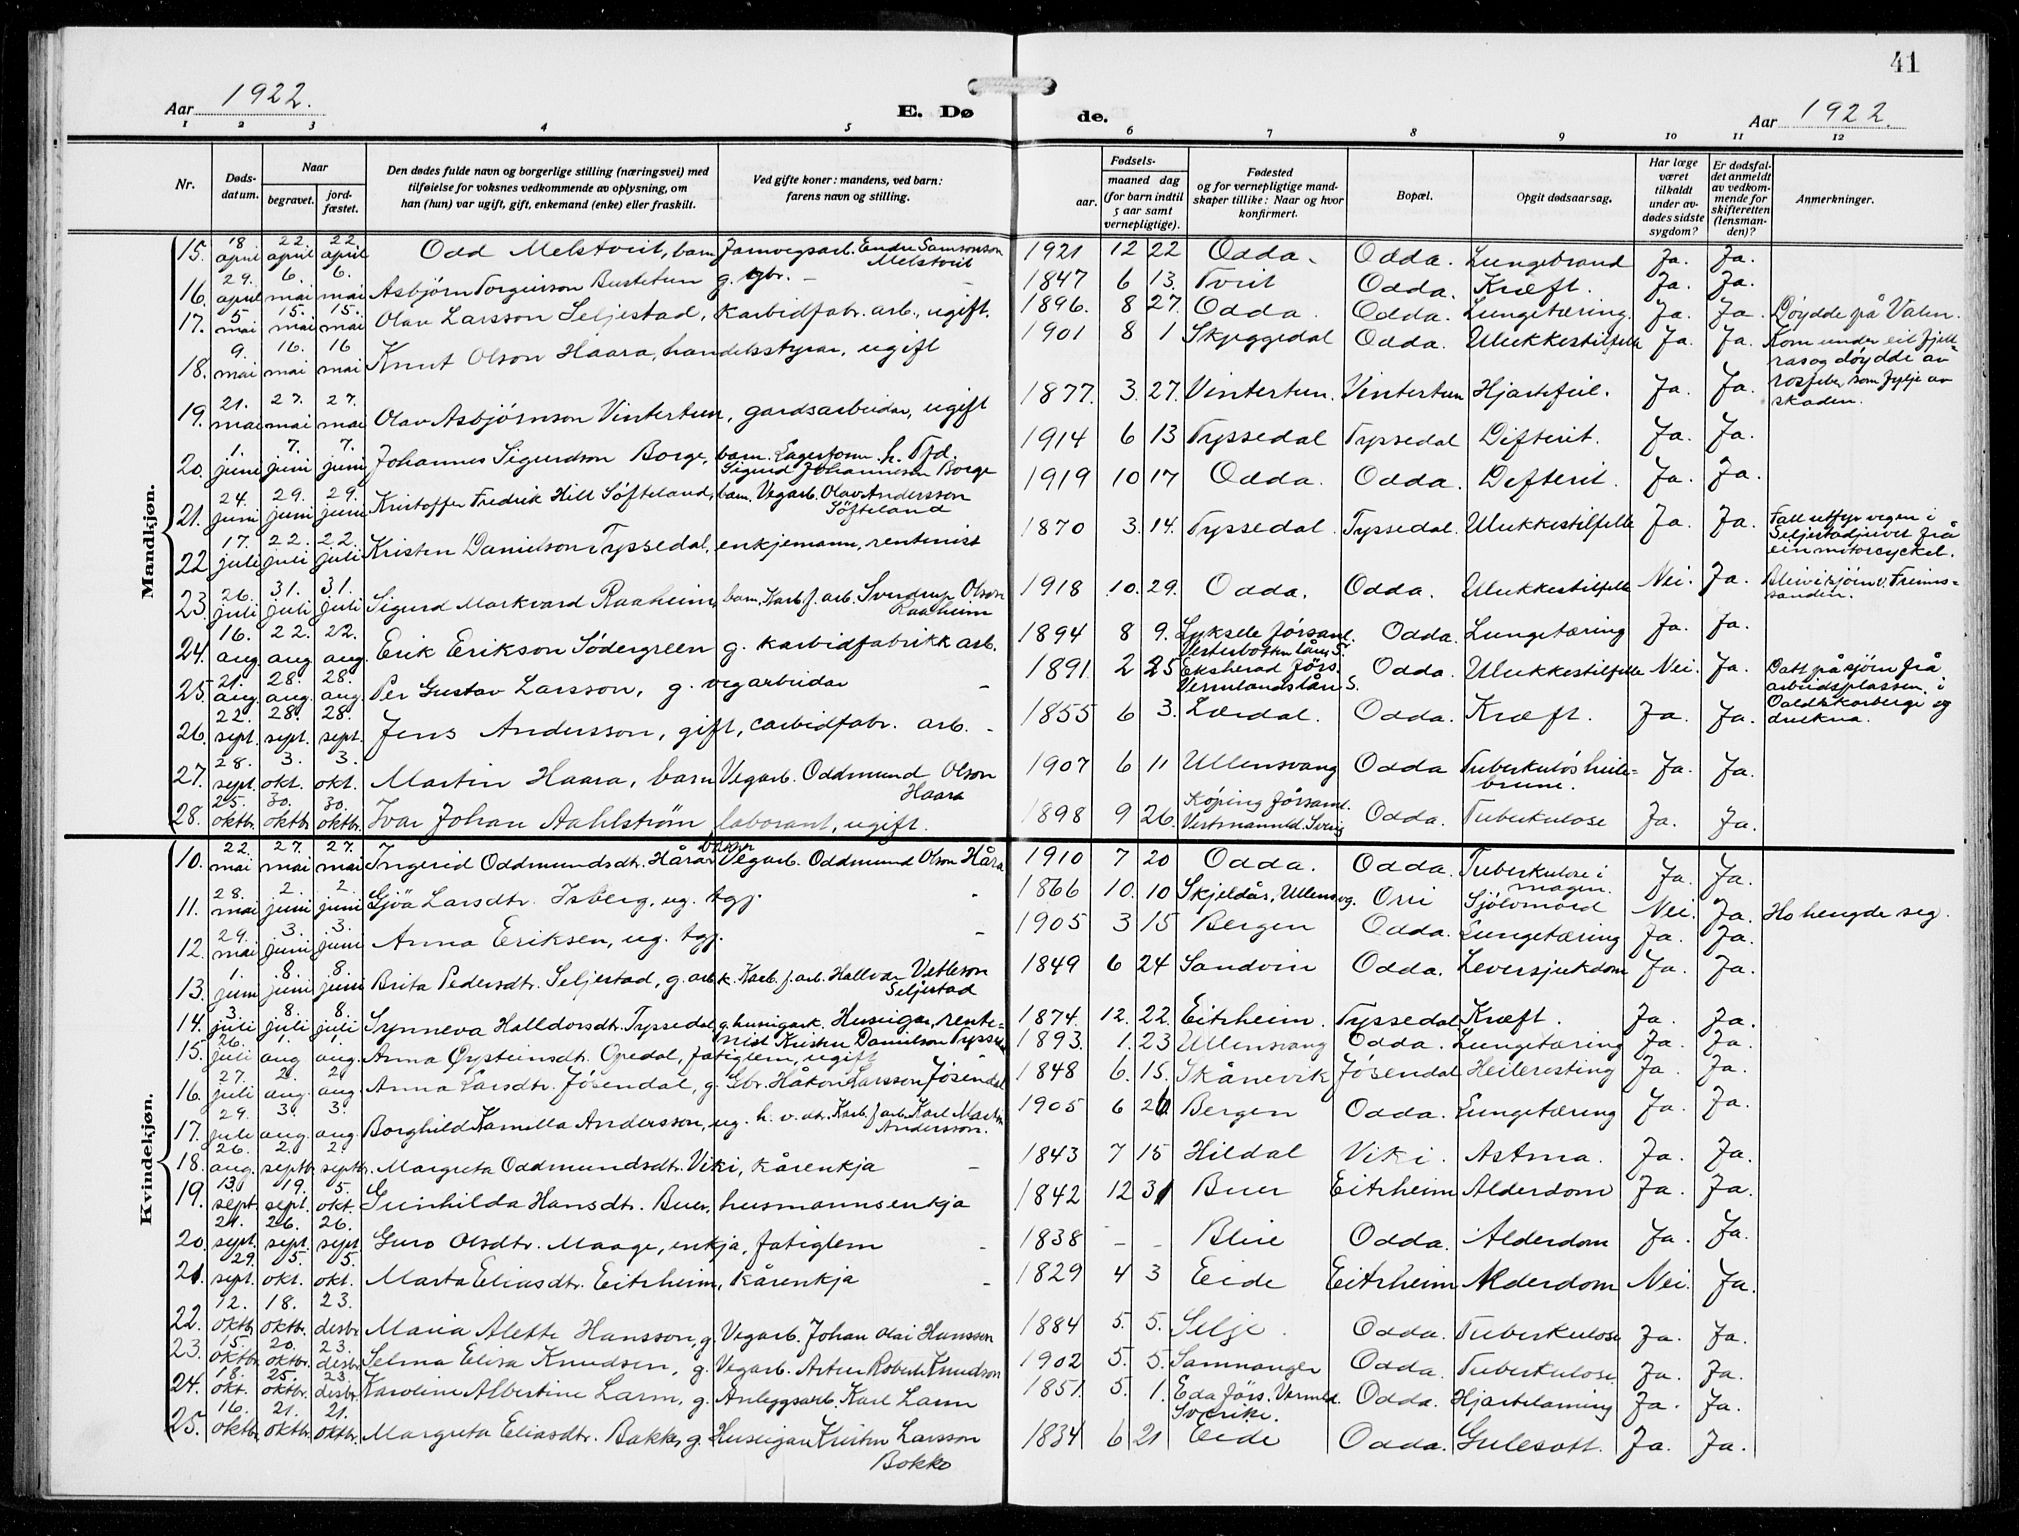 41
Aar 1922.
E. Døde.
Aar 1922.
1 2 3 4 5 6 7 8 9 10 11 12
Nr.
Dødsdatum.
Naar
begravet.
jordfæstet.
Den dødes fulde navn og borgerlige stilling (næringsvei) med
tilføielse for voksnes vedkommende av oplysning, om
han (hun) var ugift, gift, enkemand (enke) eller fraskilt.
Ved gifte koner: mandens, ved barn:
farens navn og stilling.
Fødsels-
aar. maaned dag
(for barn indtil
5 aar samt
vernepligtige).
Fødested
og for vernepligtige mandskaper tillike: Naar og hvor
konfirmert.
Bopæl.
Opgit dødsaarsag.
Har læge
været
tilkaldt
under avdødes sidste
sygdom?
Er dødsfaldet anmeldt
av vedkommende for
skifteretten
(lensmanden)?
Anmerkninger.
Mandkjøn.
15. 18. april 22. april 22. april Odd Melstveit, barn Jarnvegsarb. Endre Samsonson Melstveit 1921 12 22 Odda. Odda. Lungebrand Ja. Ja.
16. 29. april 6. mai 6. mai Asbjørn Torgeirson Bustetun g. gbr. – 1847 6 13. Tveit Odda. Kræft. Ja. Ja.
17. 5 mai 15. mai 15. mai Olav Larsson Seljestad, karbidfabr. arb., ugift. 1896. 8 27. Odda. Odda. Lungetæring. Ja. Ja. Døydde på Valen.
18. 9. mai 16. mai 16 mai Knut Olson Haara, handelsstyrar, ugift 1901 8 1 Skjeggedal Odda. Ulukkestilfelle Ja. Ja. Kom under eit fjellras og døydde av rosfeber, som fylje av skaden.
19. 21. mai 27. mai 27. mai Olav Asbjørnson Vintertun, gardsarbeidar, ugift 1877. 3. 27. Vintertun. Vintertun Hjartefeil. Ja. Ja.
20. 1. juni 7. juni 7. juni Johannes Sigurdson Borge, barn. Lagerform. h. Tfd. Sigurd Johanneson Borge 1914 6 13 Tyssedal Tyssedal Difterit. Ja. Ja.
21. 24. juni 29. juni 29. juni Kristoffer Fredrik Hill Søfteland, barn. Vegarb. Olav Andersson Søfteland 1919 10 17 Odda. Odda. Difterit. Ja. Ja.
22 17. juli 22. juli 22. juli Kristen Danielson Tyssedal, enkjemann, rentenist 1870 3. 14. Tyssedal. Tyssedal. Ulukkestilfelle Ja. Ja. Fall utfyr vegen i Seljestadjuvet frå ein motorcyckel.
23. 26. juli 31. juli 31. juli Sigurd Markvard Raaheim, barn. Karb. f. arb. Sverdrup Olson Raaheim 1918 10. 29. Odda. Odda. Ulukkestilfelle Nei. Ja.
24. 16. aug. 22. aug 22. aug. Erik Erikson Södergreen g. karbidfabrikk arb. 1894 8 9. Lyksele førsaml. Vesterbotten låns S. Odda. Lungetæring Ja. Ja.
25. 21. aug 28. aug. 28. aug Per Gustav Larsson, g. vegarbeidar – 1891. 2 25 Eksherad førs. Vermlandslån S. Odda. Ulukkestilfelle Nei. Ja. Datt på sjøen frå arbeidsplassen i og drukna.
26. 22. sept. 28. sept. 28. sept. Jens Andersson, gift, carbidfabr. arb. – 1855 6 3. Lærdal. Odda. Kræft. Ja. Ja.
27. 28. sept. 3. okt. 3. okt. Martin Haara, barn Vegarb. Oddmund Olson Haara 1907 6 11 Ullensvang Odda Tuberkuløs Ja. Ja.
28. 25. oktb. 30. oktb. 30. oktb. Ivar Johan Aahlstrøm laborant, ugift. 1898 9 26. Køping førsaml. Vestmannld. Sverig Odda. Tuberkulose Ja. Ja.
Kvindekjøn.
10. 22. mai 27. mai 27. mai Ingerid Oddmundsdtr. Håra barn Vegarb. Oddmund Olson Håra 1910 7 20 Odda. Odda. Tuberkulose i magen. Ja. Ja.
11. 28. mai 2. juni 2. juni Gjöa Larsdtr. Isberg, ug. tgj. – 1866 10. 10 Skjeldås, Ullensvg. Orri Sjølvmord Nei. Ja. Ho hengde seg.
12. 29. mai 3. juni 3. juni Anna Eriksen, ug. tgj. – 1905 3 15 Bergen Odda. Lungetæring Ja. Ja.
13. 1. juni 8. juni 8. juni Brita Pedersdtr. Seljestad, g. arbk. Karb. f. arb. Hallvar Vetleson Seljestad 1849 6 24 Sandvin Odda. Leversjukdom Ja. Ja.
14. 3. juli 8. juli 8. juli Synneva Halldorsdtr. Tyssedal g. huseigark. Huseigar, rentenist Kristen Danielson Tyssedal 1874. 12. 22. Eitrheim. Tyssedal Kræft. Ja. Ja.
15. 26. juli 1. aug 1. aug. Anna Øysteinsdtr. Opedal, fatiglem, ugift – 1893. 1. 23 Ullensvang Odda. Lungetæring Ja. Ja.
16. 27. juli 2. aug. 2. aug. Anna Larsdtr. Jøsendal, g. Gbr. Håkon Larsson Jøsendal 1848 6. 15. Skånevik Jøsendal Ja. Ja.
17. 29. juli 3. aug. 3. aug. Borghild Kamilla Andersson, ug. h. v. dt. Karb. f. arb. Karl Martin Andersson. 1905 6 20 Bergen Odda. Lungetæring Ja. Ja.
18. 26. aug. 2. septb. 2. septb. Margreta Oddmundsdtr. Viki, kårenkja – 1843 7 15 Hildal Viki. Astma. Ja. Ja.
19. 13. sept. 19. sept. 5. okt. Gunhilda Hansdtr. Buer, husmannsenkja 1842 12 31 Buer Eitrheim Alderdom Ja. Ja.
20. 21. sept. 26. sept. 26. sept Guro Olsdtr. Maage, enkja, fatiglem – 1838 – – Bleie Odda. Alderdom Ja. Ja.
21. 29. sept. 5. okt. 5. okt. Marta Eliasdtr. Eitrheim, kårenkja – 1829 4 3 Eide Eitrheim Alderdom Nei. Ja.
22. 12. oktb. 18. oktb. 23. desbr Maria Alette Hansson, g. Vegarb. Johan Olai Hansson 1884 5. 5. Selje. Odda. Tuberkulose Ja. Ja.
23. 15. oktbr. 20. oktbr. 23. desbr Selma Elisa Knudsen, g. Vegarb. Artur Robert Knudson 1902 5. 5. Samnanger Odda. Tuberkulose Ja. Ja.
24. 18. okt. 25. oktbr. 23. desbr Karoline Albertine Larm, g. Anleggsarb. Karl Larm 1851. 5. 1. Edaførs. Vermld. Sverike. Odda. Hjartelaming Ja. Ja.
25. 16. oktbr. 21. oktbr. 21. oktbr. Margreta Eliasdtr. Bakke, g. Huseigar Kristen Larsson Bokko 1834 6 21 Eide Odda. Gulesott. Ja. Ja.